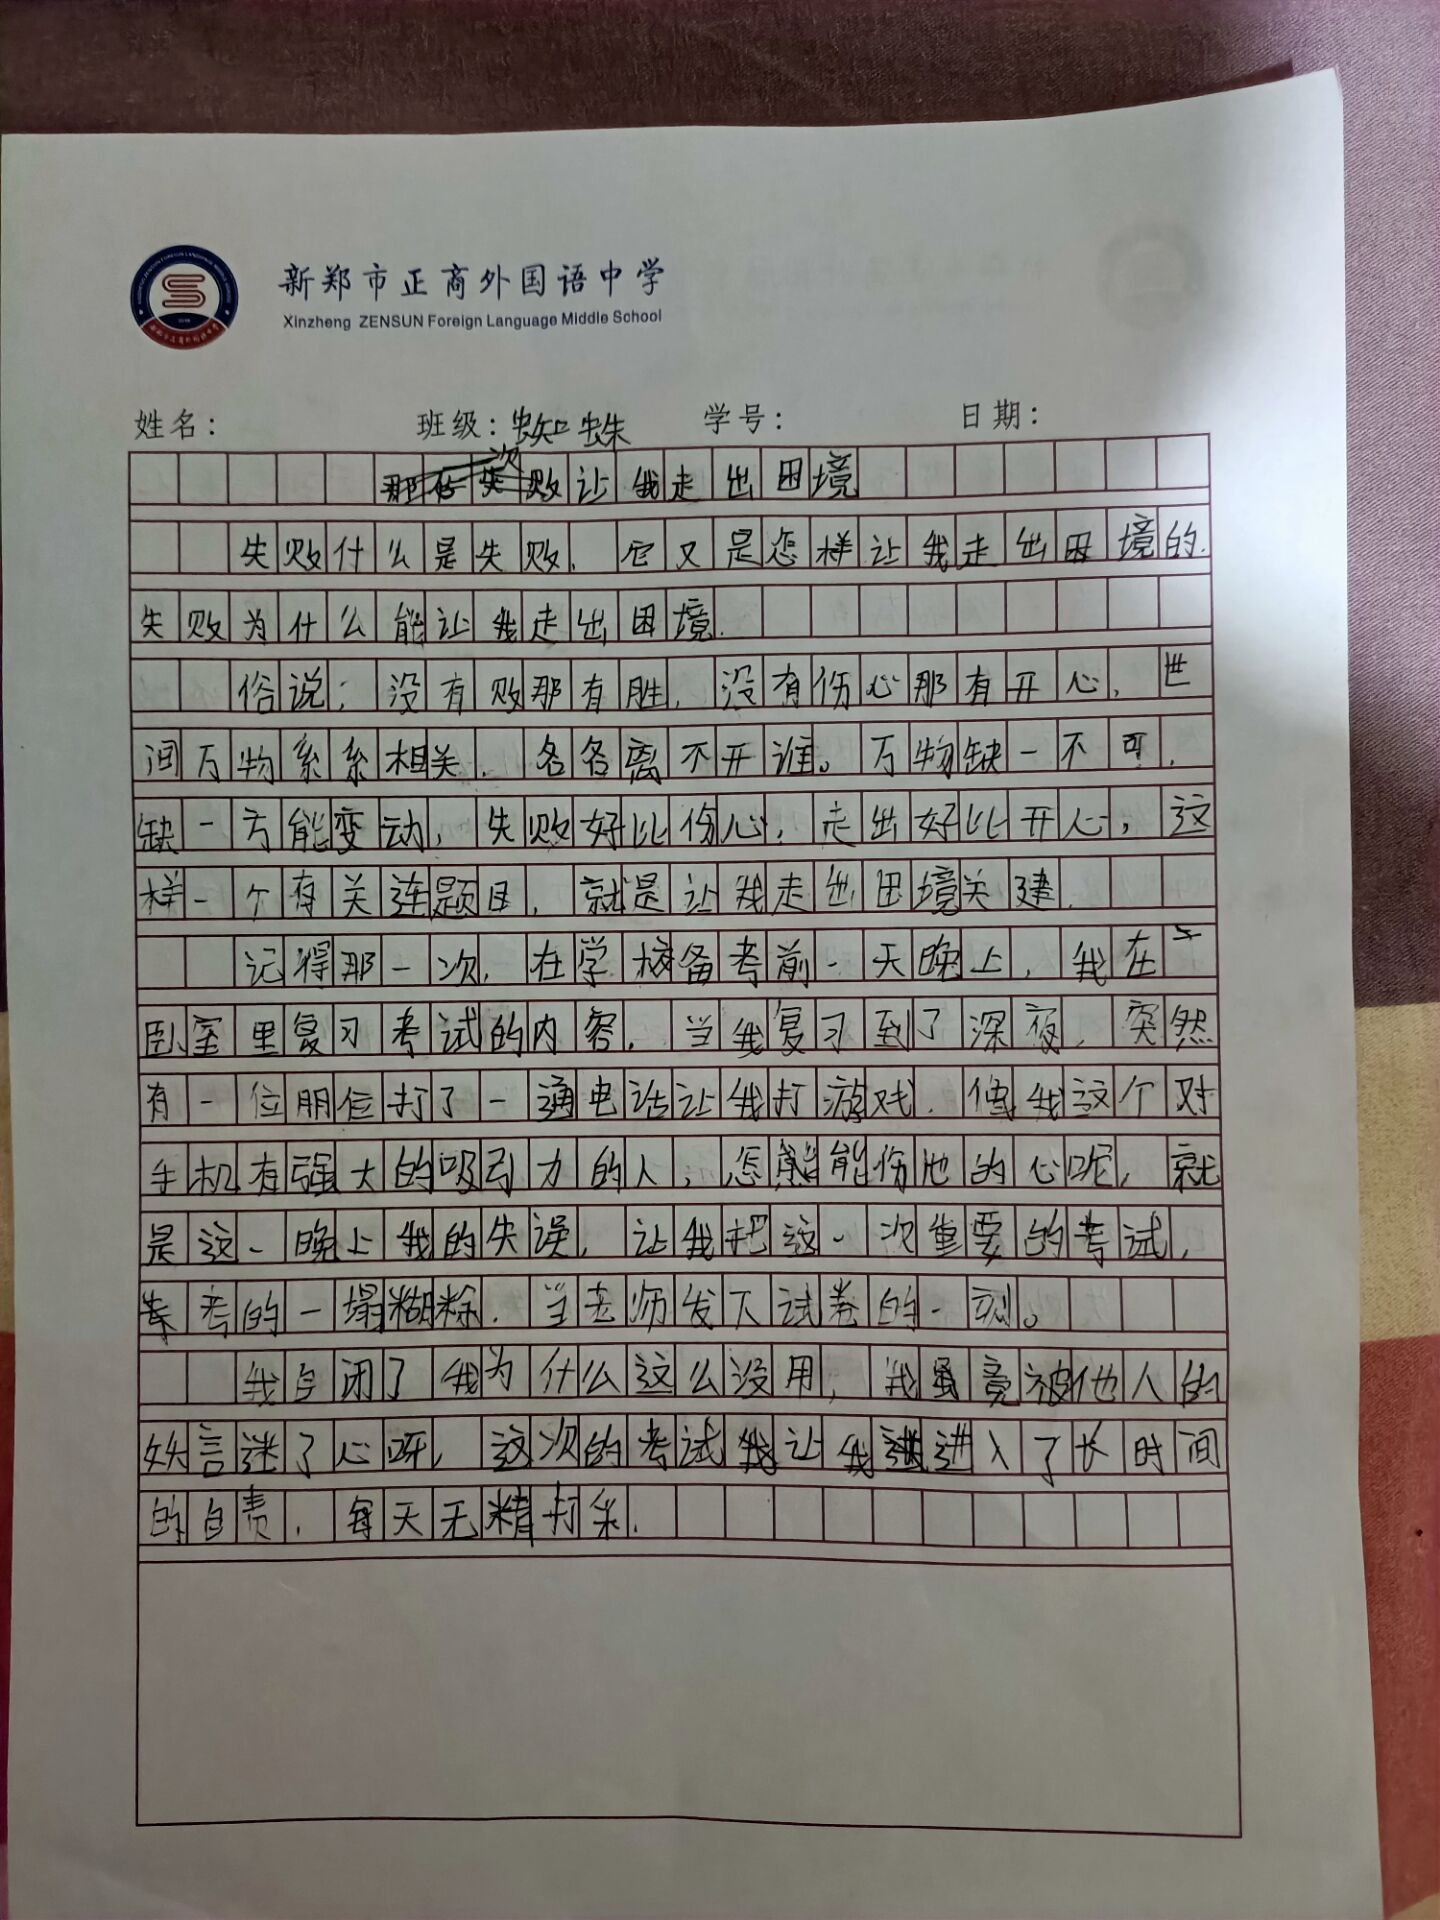 新郑市正商外国语中学
Xinzheng ZENSUN Foreign Language Middle School
姓名： 班级：蜘蛛 学号： 日期：
次
失败让我走出困境
失败什么是失败，它又是怎样让我走出困境的.
失败为什么能让我走出困境.
俗说：没有败那有胜，没有伤心那有开心，世
间万物系系相关，各各离不开谁。万物缺一不可，
缺一方能变动，失败好比伤心，走出好比开心，这
样一个有关连题目，就是让我走出困境关建.
记得那一次，在学校备考前一天晚上，我在
卧室里复习考试的内容，当我复习到了深夜，突然
有一位朋位打了一通电话让我打游戏，像我这个对
手机有强大的吸引力的人，怎能伤他的心呢，就
是这一晚上我的失误，让我把这一次重要的考试，
考的一塌糊粽.当老师发下试卷的一刻。
我自闭了我为什么这么没用，我竟被他人的
妖言迷了心呀，这次的考试让我进入了长时间
的自责，每天无精打采.